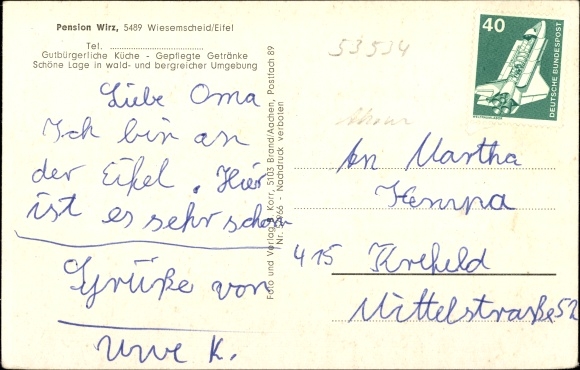 Pension Wirz, 5489 Wiesemscheid/Eifel
Tel.
Gutbürgerliche Küche - Gepflegte Getränke
Schöne Lage in wald- und bergreicher Umgebung
Liebe Oma
Ich bin an
der Eifel. Hier
ist es sehr schön
Grüße von
Uwe K.
Foto und Verlag g. Korr, 5103 Brand/Aachen, Postfach 89
Nachdruck verboten
53534
40
DEUTSCHE BUNDESPOST
An Martha
Kempa
415 Krefeld
Mittelstraße 52